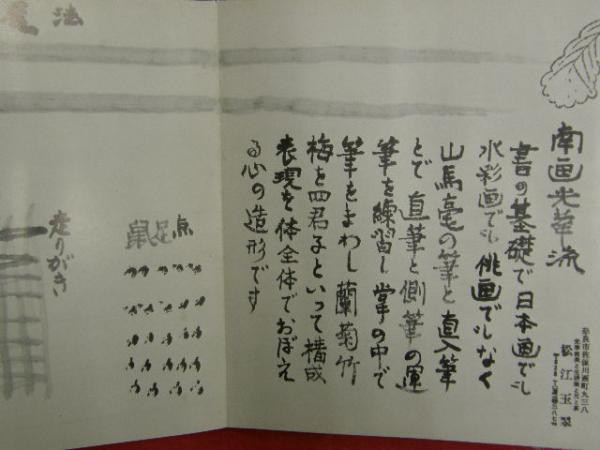 南画光華流
書の基礎で日本画でも
水彩画でも俳画でもなく
山馬毫の筆と直入筆
とで直筆と側筆の運
筆を練習し掌の中で
筆をまわし蘭菊竹
梅を四君子といって構成
表現を体全体でおぼえ
る心の造形です
松江玉翠
法
鼠足点
走りがき